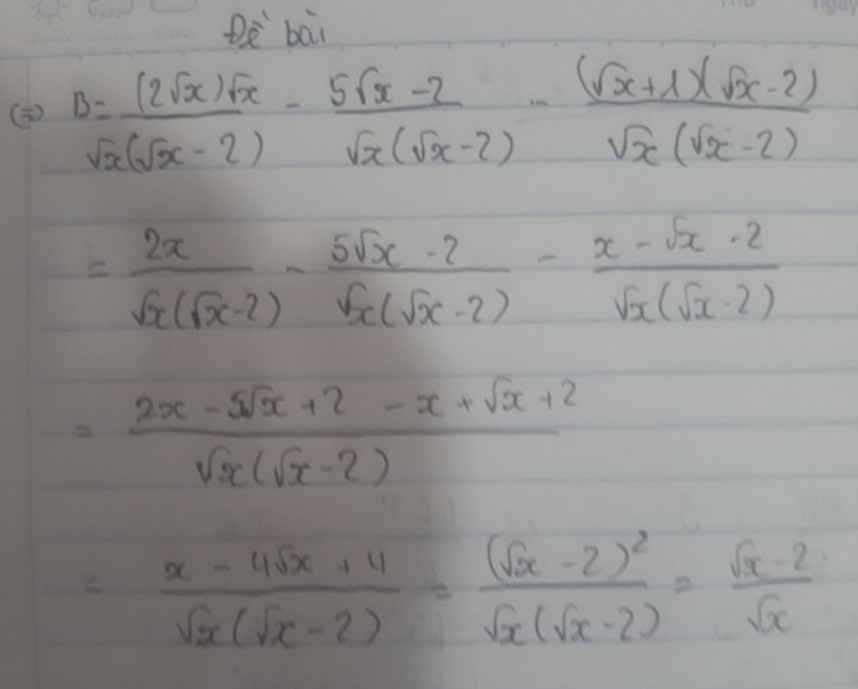 Đề bài
(=) B = (2√x)√x / √x(√x - 2) - 5√x - 2 / √x(√x - 2) - (√x + 1)(√x - 2) / √x(√x - 2)
= 2x / √x(√x - 2) - 5√x - 2 / √x(√x - 2) - x - √x - 2 / √x(√x - 2)
= 2x - 5√x + 2 - x + √x + 2 / √x(√x - 2)
= x - 4√x + 4 / √x(√x - 2) = (√x - 2)² / √x(√x - 2) = √x - 2 / √x